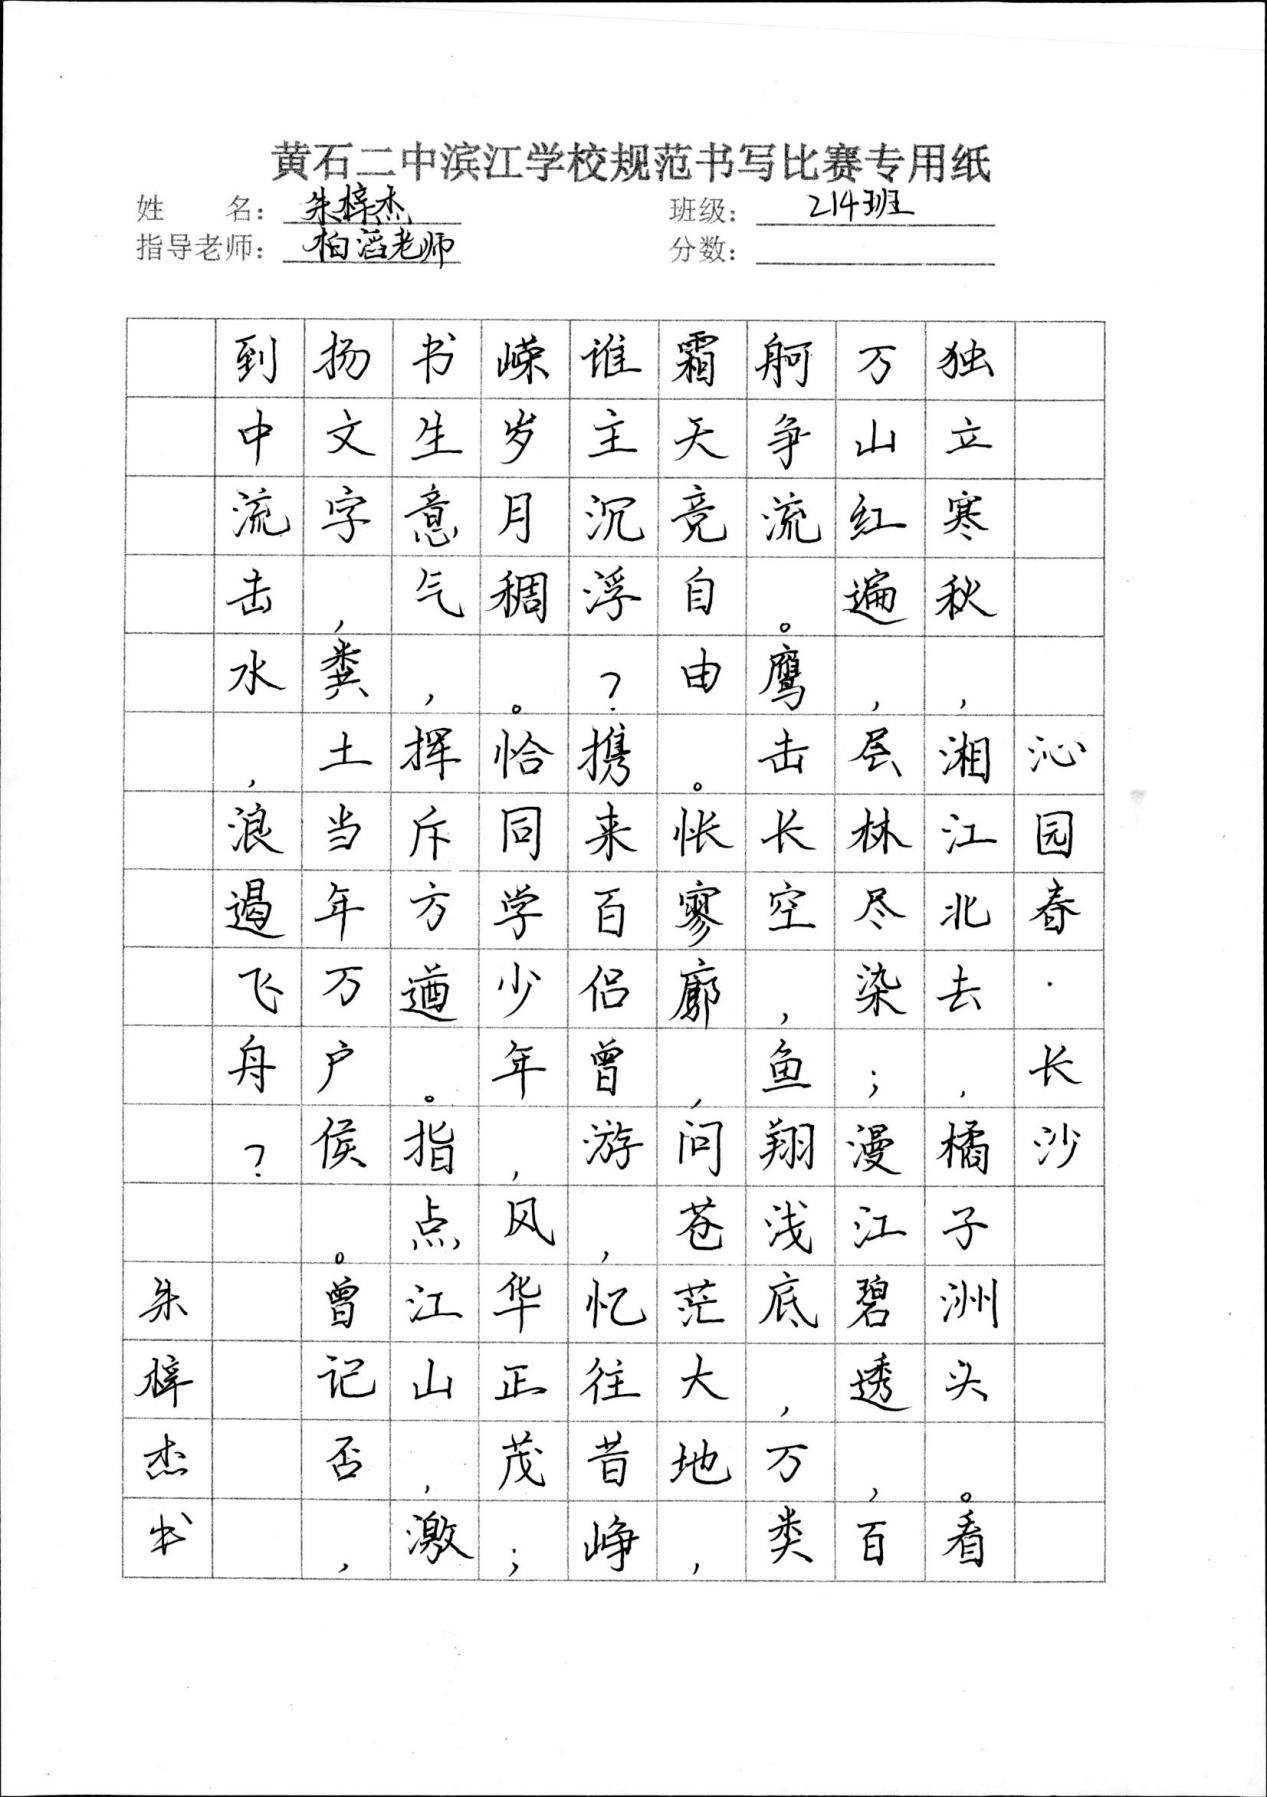 黄石二中滨江学校规范书写比赛专用纸
姓 名：朱梓杰 班级：214班
指导老师：柏滔老师 分数：
沁园春·长沙
独立寒秋，湘江北去，橘子洲头。看
万山红遍，层林尽染；漫江碧透，百
舸争流。鹰击长空，鱼翔浅底，万类
霜天竞自由。怅寥廓，问苍茫大地，
谁主沉浮？携来百侣曾游，忆往昔峥
嵘岁月稠。恰同学少年，风华正茂；
书生意气，挥斥方遒。指点江山，激
扬文字，粪土当年万户侯。曾记否，
到中流击水，浪遏飞舟？
朱梓杰书